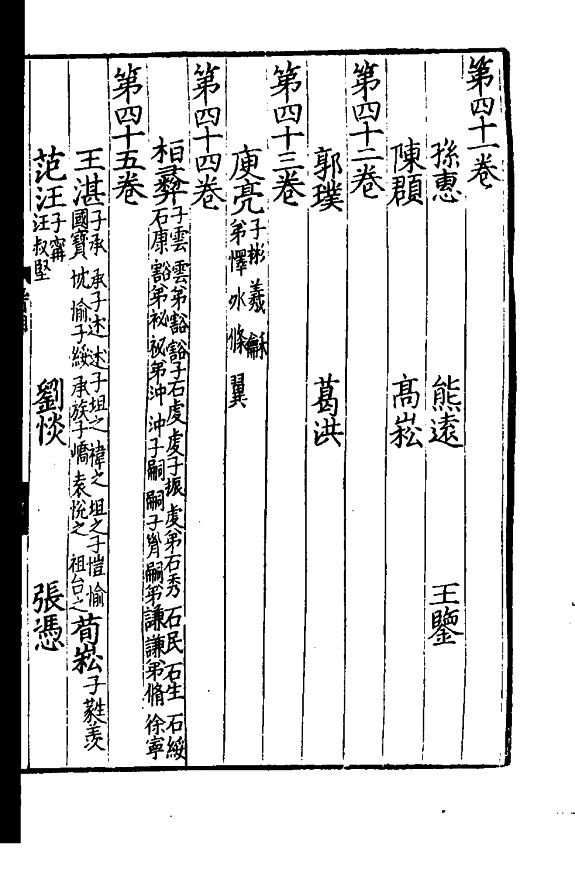 第四十一卷
孫惠 熊遠 王鑒
陳頵 高崧
第四十二卷
郭璞 葛洪
第四十三卷
庾亮 子彬 羲 龢
弟懌 冰 條 翼
第四十四卷
桓彞 子雲 雲弟豁 豁子石虔 虔子振 虔弟石秀 石民 石生 石綏
石康 豁弟祕 祕弟沖 沖子嗣 嗣子胤 嗣弟謙 謙弟脩 徐寧
第四十五卷
王湛 子承 承子述 述子坦之 禕之 坦之子愷 愉
國寶 忱 愉子綏 承族子嶠 袁悅之 祖台之
荀崧 子蕤 羨
范汪 子甯
汪叔堅
劉惔 張憑